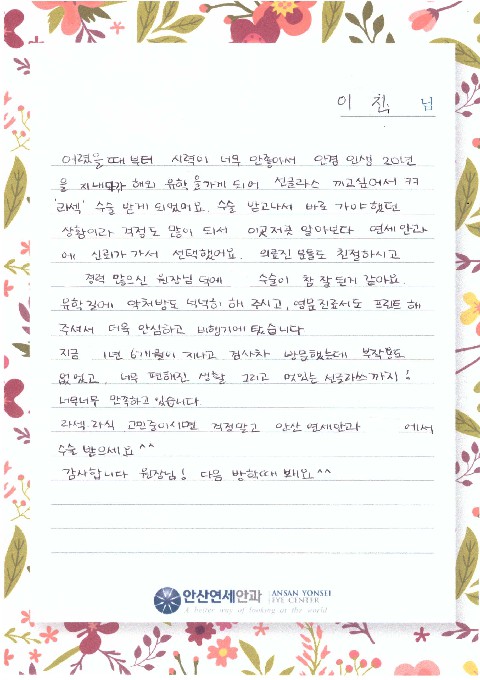 이 친 님
어렸을때부터 시력이 너무 안좋아서 안경 인생 20년
을 지내다가 해외 유학을가게 되어 선글라스 끼고싶어서 ㅋㅋ
'라섹' 수술 받게 되었어요. 수술 받고나서 바로 가야했던
상황이라 걱정도 많이 되서 이곳저곳 알아보다 연세안과
에 신뢰가 가서 선택했어요. 의료진 분들도 친절하시고
경력 많으신 원장님 덕에 수술이 참 잘 된거 같아요.
유학길에 약처방도 넉넉히 해 주시고, 영문진료서도 프린트 해
주셔서 더욱 안심하고 비행기에 탔습니다
지금 1년 6개월이 지나고 검사차 방문했는데 부작용도
없었고, 너무 편해진 생활 그리고 멋있는 선글라쓰까지!
너무너무 만족하고 있습니다.
라섹 라식 고민중이시면 걱정말고 안산연세안과 에서
수술 받으세요 ^^
감사합니다 원장님! 다음 방학때 봬요 ^^
안산연세안과 ANSAN YONSEI
EYE CENTER
A better way of looking at the world